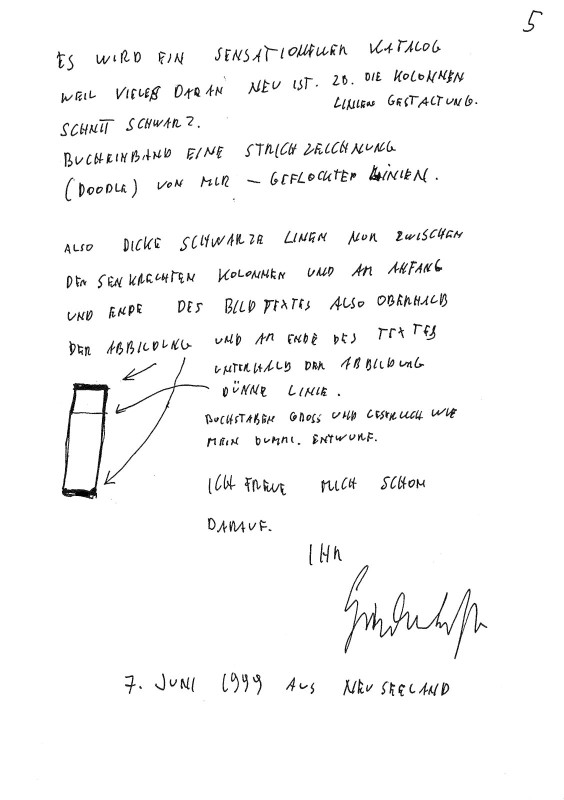 5
ES WIRD EIN SENSATIONELLER KATALOG
WEIL VIELES DARAN NEU IST. ZB. DIE KOLONNEN
LINIEN GESTALTUNG.
SCHNITT SCHWARZ.
BUCHEINBAND EINE STRICHZEICHNUNG
(DOODLE) VON MIR – GEFLOCHTEN LINIEN.
ALSO DICKE SCHWARZE LINEN NUR ZWISCHEN
DEN SENKRECHTEN KOLONNEN UND AM ANFANG
UND ENDE DES BILDTEXTES ALSO OBERHALB
DER ABBILDUNG UND AM ENDE DES TEXTES
UNTERHALB DER ABBILDUNG
DÜNNE LINIE.
BUCHSTABEN GROSS UND WIE
MEIN DUMMI. ENTWURF.
ICH FREUE MICH SCHON
DARAUF.
IHR
7. JUNI 1999 AUS NEUSEELAND